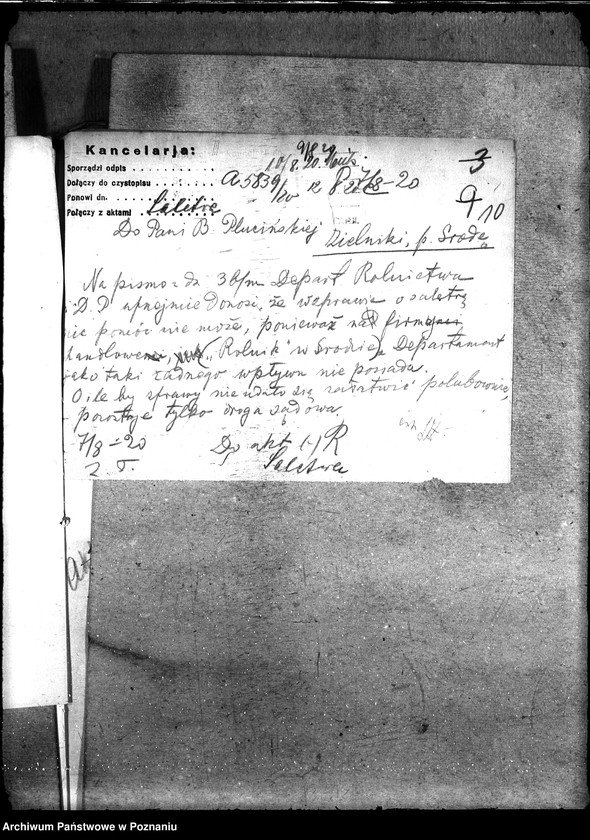 Kancelarja:
Sporządzi odpis
Dołączy do czystopisu
Ponowi dn.
Połączy z aktami Saletra
9/8 20
10/8. 20.
A 5839/20 z 8 7/8-20
3
9
10
Do Pani B. Plucińskiej
Zielniki, p. Środa
Na pismo z dn. 3 bm Depart Rolnictwa
D.D. uprzejmie donosi, że w sprawie o saletrę
nic pomóc nie może, ponieważ na firmę
handlową, „Rolnik" w Środzie, Departament
jako taki żadnego wpływu nie posiada.
O ile by sprawy nie udało się załatwić polubownie,
pozostaje tylko droga sądowa.
7/8-20
Do akt R
Saletra
Archiwum Państwowe w Poznaniu